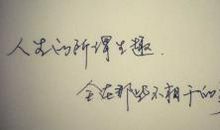 人生的所谓生趣.
全在那些不相干的